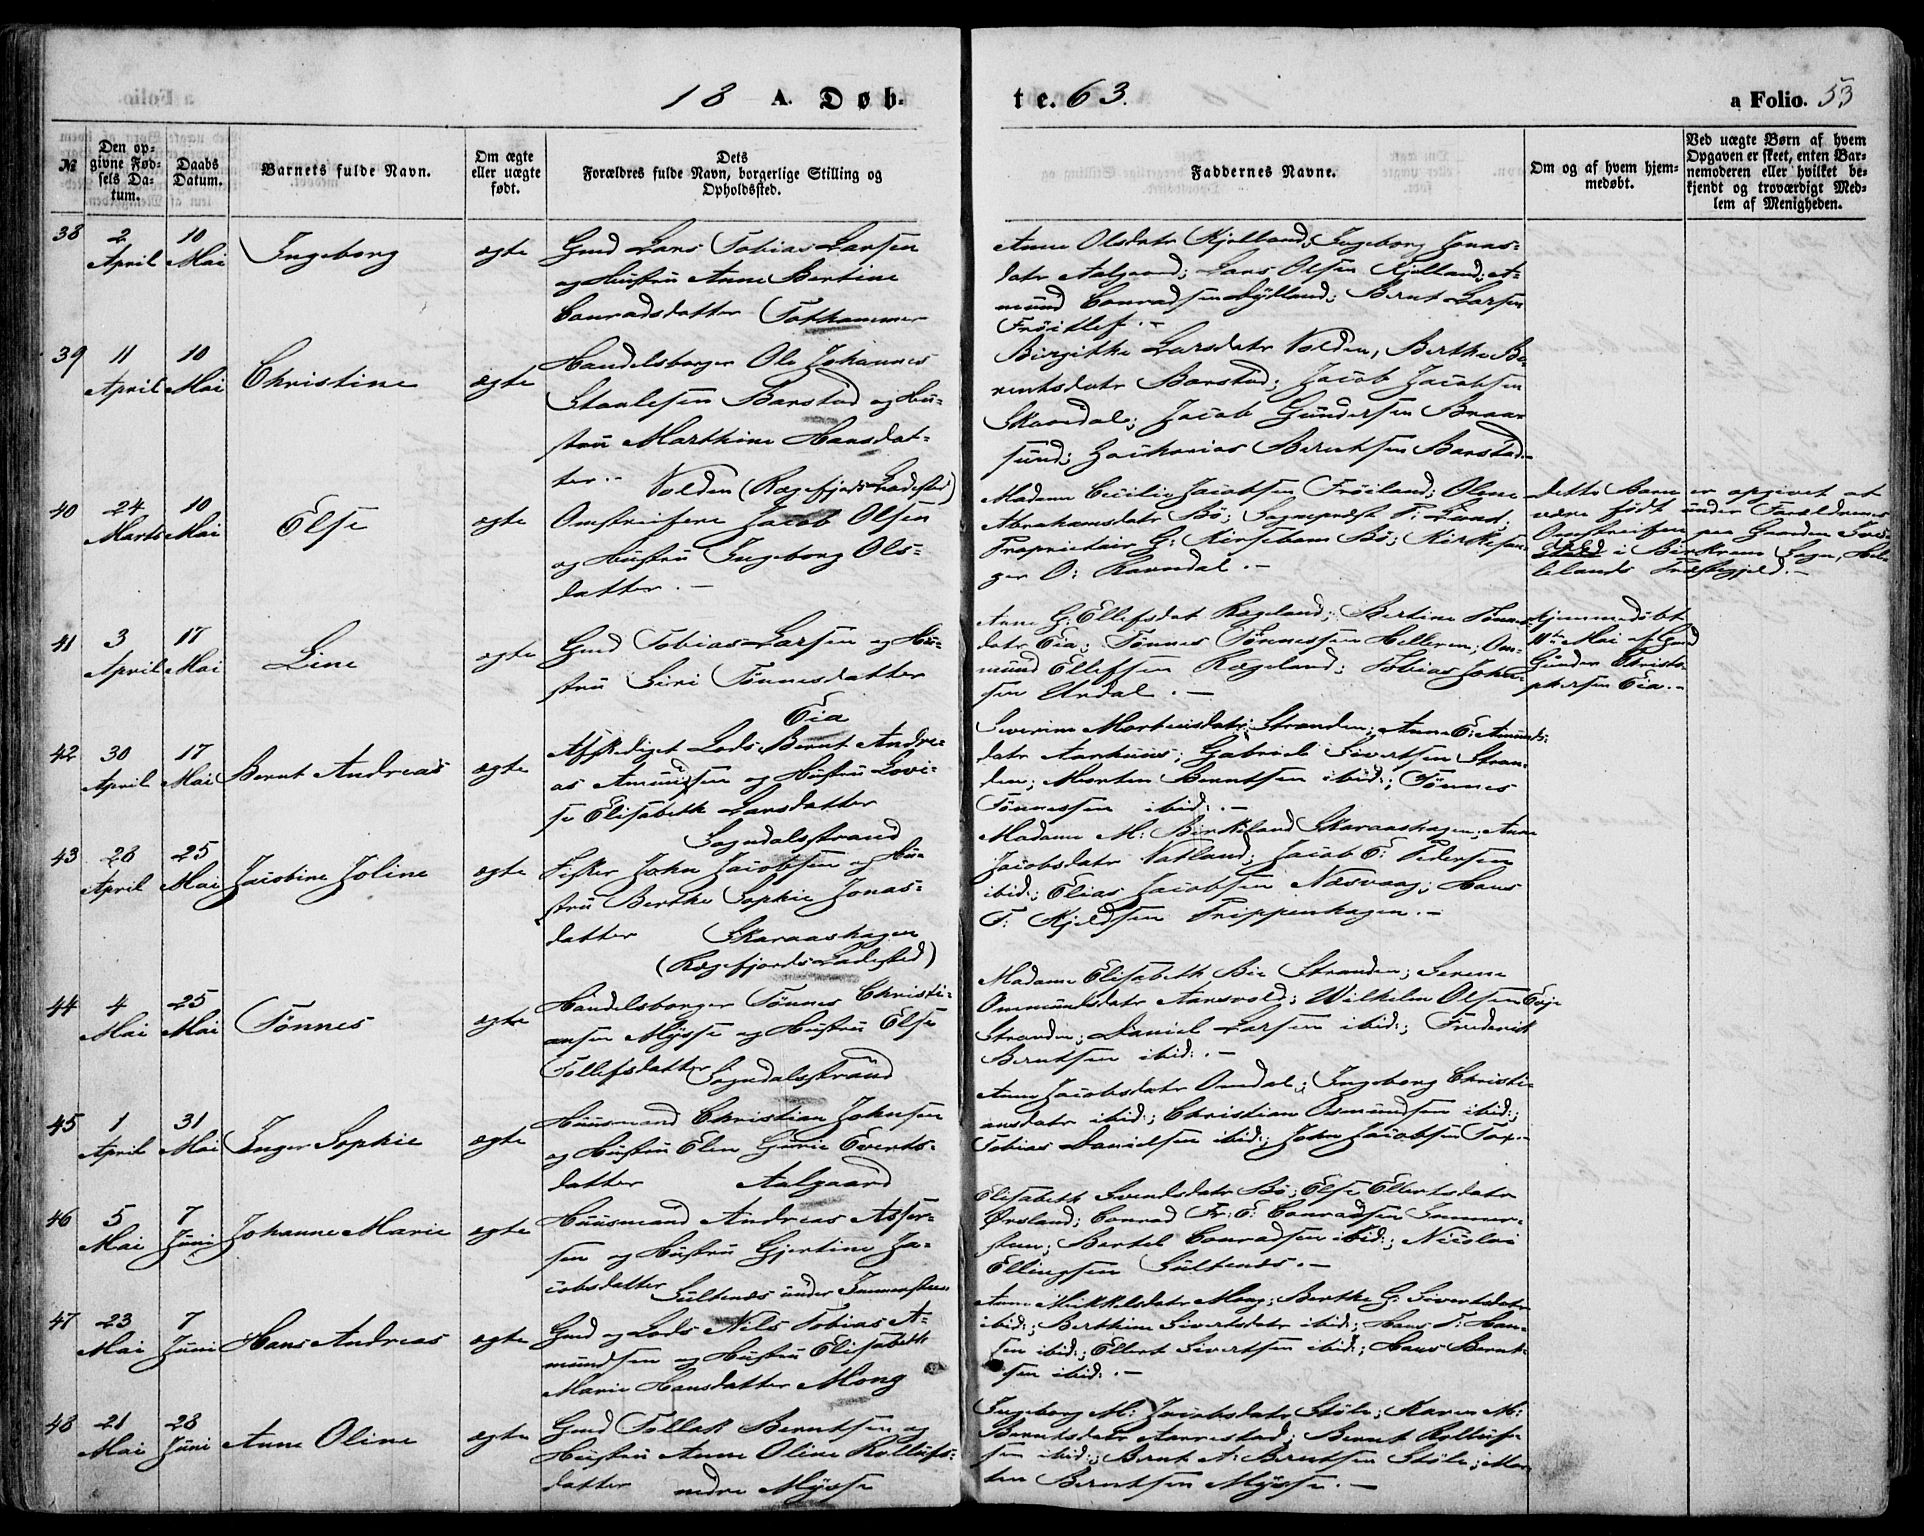 18 A. Døb-
te. 63.
a Folio. 53
№
Den op-
givne Fød-
sels Da-
tum.
Daabs
Datum.
Barnets fulde Navn.
Om ægte
eller uægte
født.
Dets
Forældres fulde Navn, borgerlige Stilling og
Opholdssted.
Faddernes Navne.
Om og af hvem hjem-
medøbt.
Ved uægte Børn af hvem
Opgaven er skeet, enten Bar-
nemoderen eller hvilket be-
kjendt og troværdigt Med-
lem af Menigheden.
38
2 April
10 Mai
Ingeborg
ægte
Gmd Lars Tobias Larsen
og Hustru Anne Bertine
Conradsdatter Tothammer
Anne Olsdatr Kjelland; Ingeborg Jonas-
datr Aalgaard; Lars Olsen Kjelland; A-
mund Conradsen Lÿdland; Bernt Larsen
Frøitlef. -
39
11 April
10 Mai
Christine
ægte
Handelsborger Ole Johannes
Staalesen Barstad og Hu-
stru Marthine Hansdat-
ter. - Volden (Rægefjords Ladested)
Birgithe Larsdatr Volden, Berthe Be-
rentsdatr Barstad; Jacob Jacobsen
Skardal; Jacob Gundersen Braa-
sund; Zacharias Berentsen Barstad
40
24 Marts
10 Mai
Else
ægte
Omstreifere Jacob Olsen
og Hustru Ingeborg Ols-
datter. -
Madame Cecilie Jacobsen Frøiland; Olene
Abrahamsdatr Bø; Sogneprest T. Lund;
Proprietair G: Kirsebom Bø; Kirkesan-
ger O: Ravndal. -
dette Barn er opgivet at
være født under Forældrenes
Omstreifen paa Gaarden Sves-
dahl i Birkrem Sogn, Hel-
lelands Præstegjeld. -
41
3 April
17 Mai
Line
ægte
Gmd Tobias Larsen og Hu-
stru Siri Tønnesdatter
Eia
Anne G: Ellefsdat Rægeland; Bertine Tønnes-
datr Eia; Tønnes Tønnessen Helleren; Om-
mund Ellefsen Rægeland; Tobias John-
sen Urdal. -
hjemmedøbt
Mai af Gmd
Gunder Christo-
phersen Eia. -
42
30 April
17 Mai
Bernt Andreas
ægte
Afskediget Lods Bernt Andre-
as Amundsen og Hustru Lovi-
se Elisabeth Larsdatter
Sogndalsstrand
Severine Mortensdatr Stranden; Anne E: Amunds-
datr Aarhuus; Gabriel Sivertsen Stran-
den; Morten Berntsen ibid:; Tønnes
Tønnessen ibid:. -
43
28 April
25 Mai
Jacobine Joline
ægte
Fisker John Jacobsen og Hu-
stru Berthe Sophie Jonas-
datter Skaraashagen
(Rægefjords Ladested)
Madame M: Birkeland Skaraashagen; Anne
Jacobsdatr Vatland; Jacob E: Pedersen
ibid:; Elias Jacobsen Næsvaag; Hans
T: Kjeldsen Trippenhagen. -
44
4 Mai
25 Mai
Tønnes
ægte
Handelsborger Tønnes Christi-
ansen Mÿsse og Hustru Else
Tollefsdatter Sogndalsstrand
Madame Elisabeth Bie Stranden; Serene
Ommundsdatr Aarsvold; Wilhelm Olsen Eeje
Stranden; Daniel Larsen ibid:; Frederik
Berntsen ibid:. -
45
1 April
31 Mai
Inger Sophie
ægte
Huusmand Christian Johnsen
og Hustru Elen Gurie Everts-
datter Aalgaard
Anne Jacobsdatr Omdal; Ingeborg Christi-
ansdatr ibid:; Christian Osmundsen ibid:;
Tobias Danielsen ibid:; John Jacobsen Tox. -
46
5 Mai
7 Juni
Johanne Marie
ægte
Huusmand Andreas Asser-
sen og Hustru Gjertine Ja-
cobsdatter Sultenæs under Immersteen
Elisabeth Svendsdatr Bø; Else Ellertsdatr
Ørsland; Conrad Fr: E: Conradsen Immer-
steen; Bertel Conradsen ibid:; Nicolai
Ellingsen Sultenæs. -
47
23 Mai
7 Juni
Hans Andreas
ægte
Gmd og Lods Nils Tobias A-
mundsen og Hustru Elisabeth
Marie Hansdatter Mong
Anne Mikkelsdatr Mong; Berthe G: Sivertsdatr
ibid:; Berthine Sivertsdatr ibid:; Hans T: Han-
sen ibid:; Ellert Sivertsen ibid:; Hans Bernt-
sen ibid:. -
48
21 Mai
28 Juni
Anne Oline
ægte
Gmd Tollak Berntsen og
Hustru Anne Oline Rollufs-
datter nedre Mÿsse
Ingeborg M: Jacobsdatr Støle; Karen M:
Berntsdatr Aarrestad; Bernt Rolluf-
sen ibid:; Bernt A: Berntsen Støle; Mor-
ten Berntsen Mÿsse. -